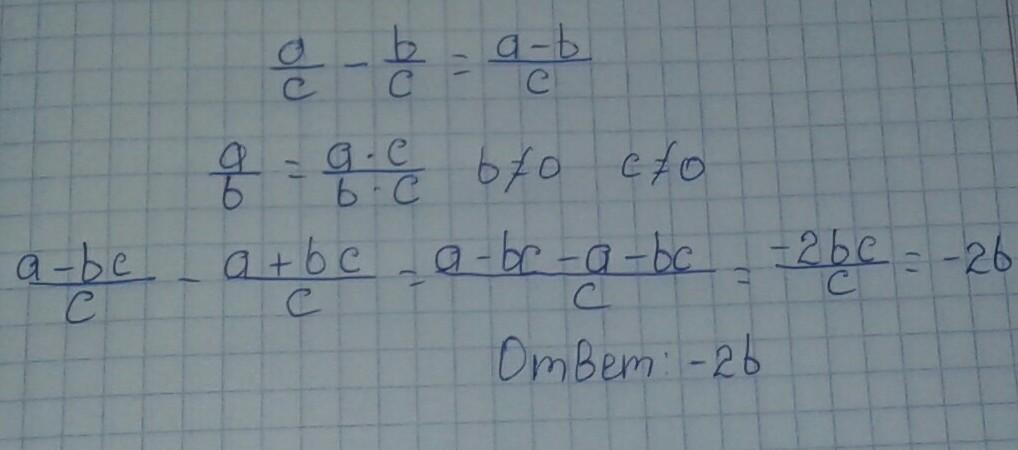 a/c - b/c = a-b/c
a/b = a·c/b·c b≠0 c≠0
a-bc/c - a+bc/c = a-bc-a-bc/c = -2bc/c = -2b
Ответ: -2b